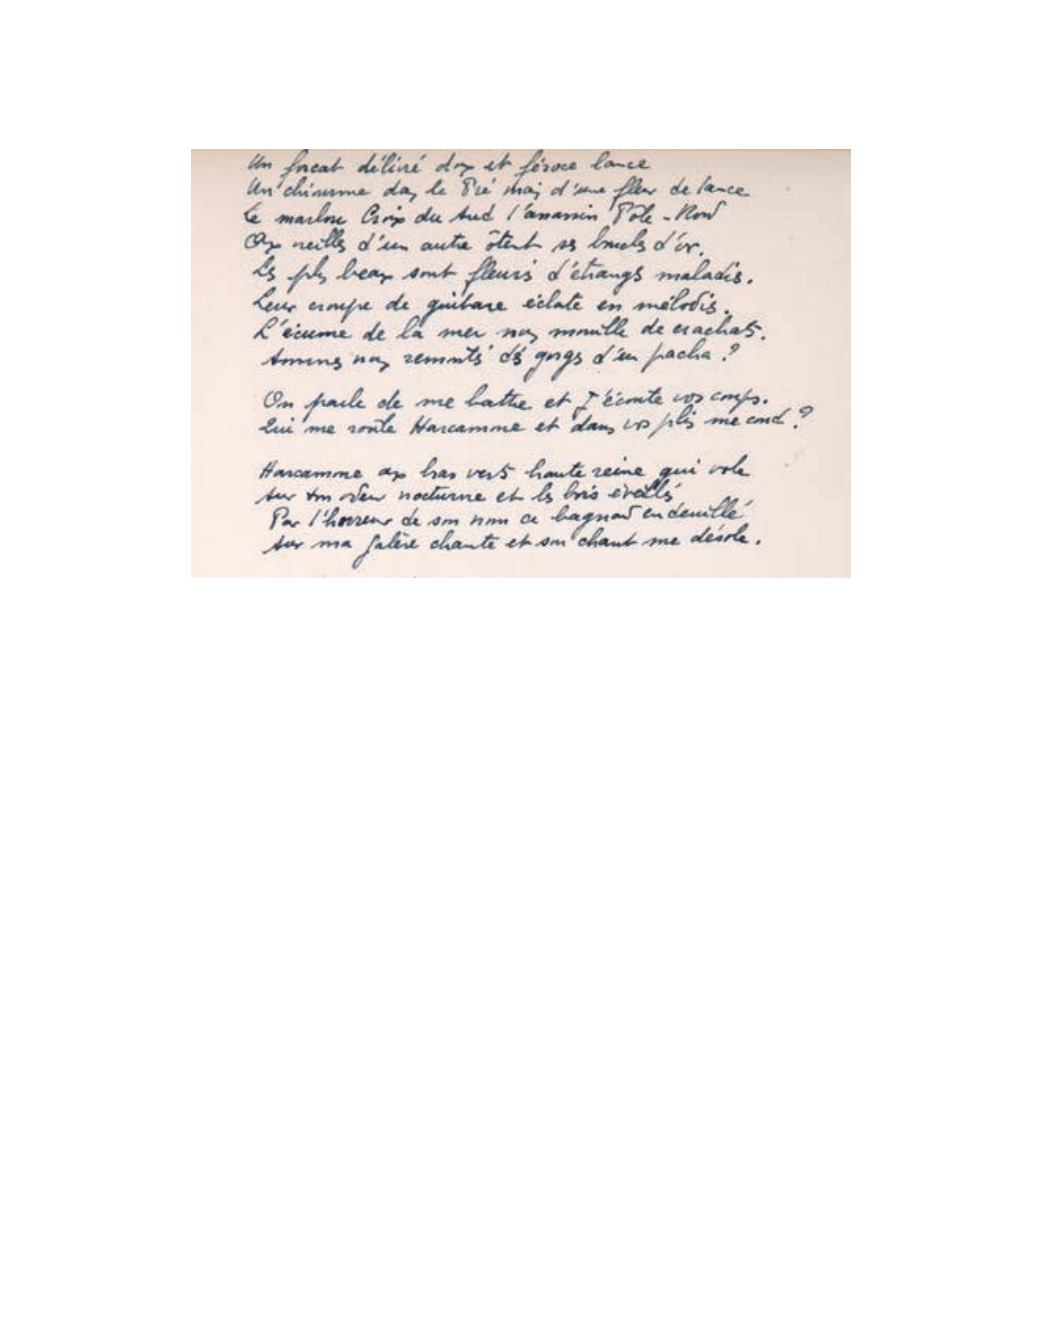 Un forçat délivré dox et féroce lance
Un chiourme dans le Pré mais d'une fleur de lance
Le marlou Croix du Sud l'assassin Pôle-Nord
Aux oreilles d'un autre ôtent ses boucles d'or.
Les plus beaux sont fleuris d'étranges maladies.
Leur croupe de guitare éclate en mélodies.
L'écume de la mer nous mouille de crachats.
Sommes nous remontés des gorges d'un pacha ?
On parle de me battre et j'écoute vos coups.
Qui me roule Harcamone et dans vos plis me coud ?
Harcamone aux bras verts haute reine qui vole
Sur ton odeur nocturne et les bois éveillés
Par l'horreur de son nom ce bagnard endeuillé
Sur ma galère chante et son chant me désole.